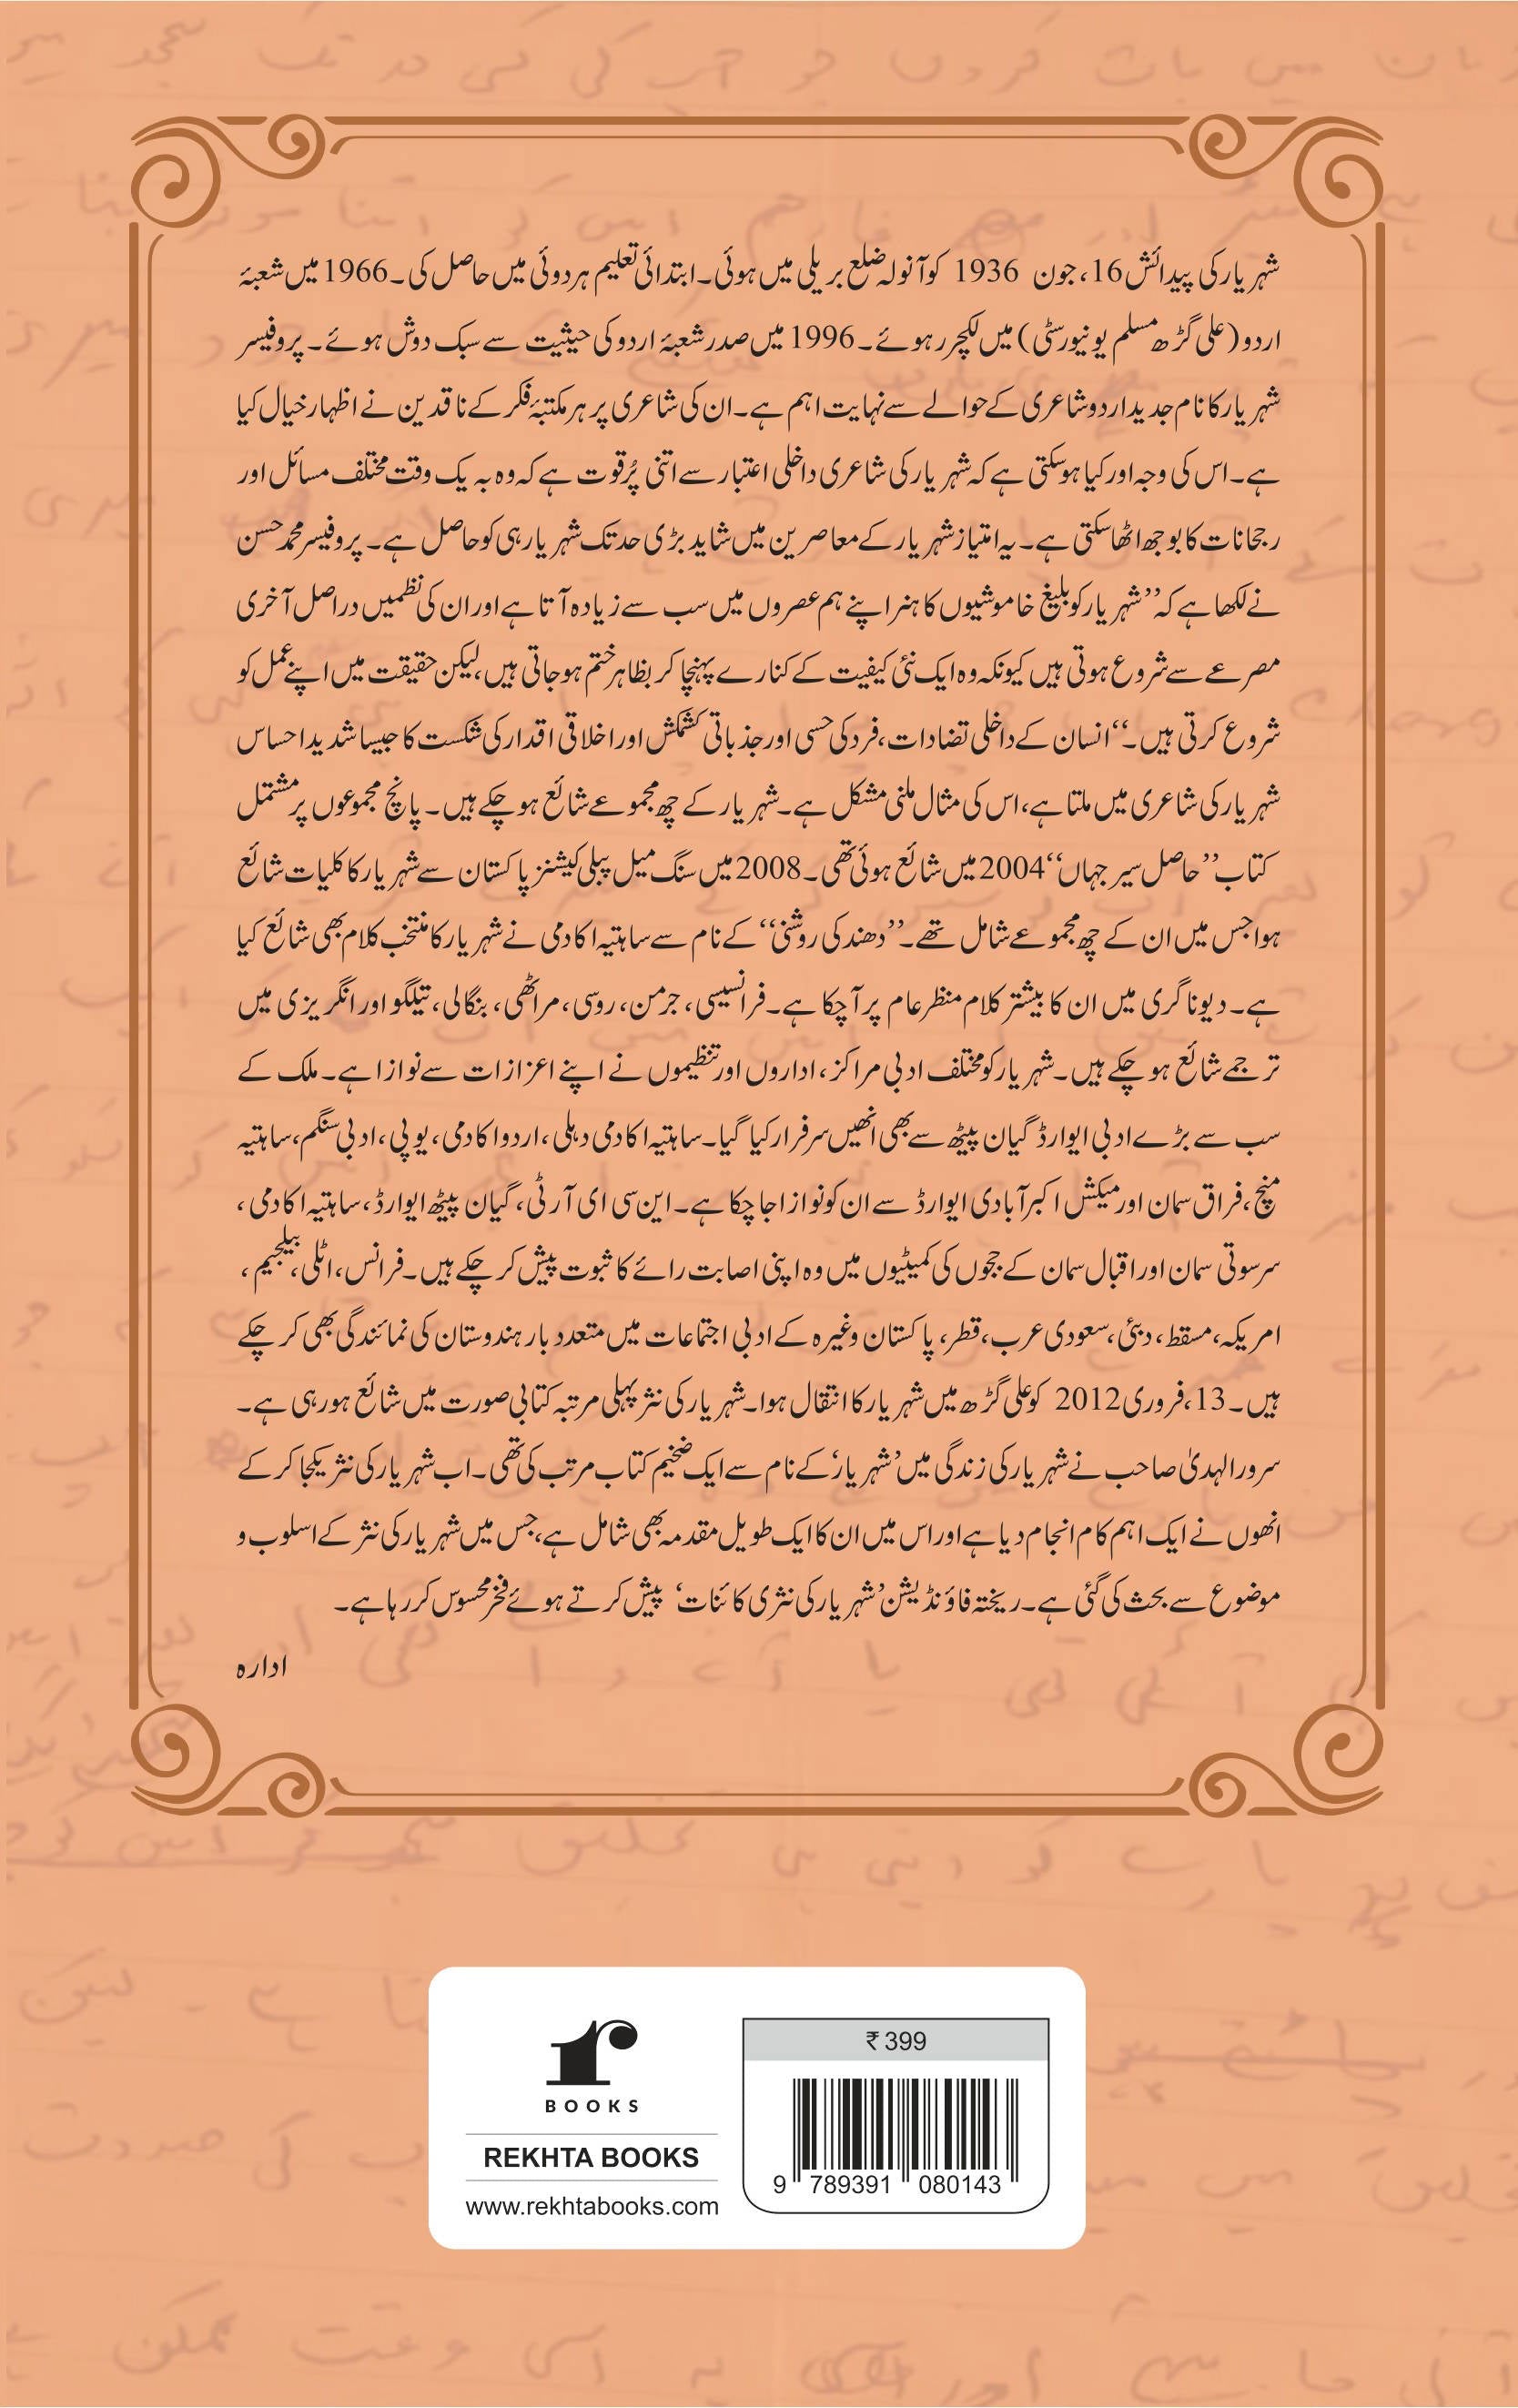 شہریار کی پیدائش 16، جون 1936 کو آنولہ ضلع بریلی میں ہوئی۔ ابتدائی تعلیم ہردوئی میں حاصل کی۔ 1966 میں شعبۂ
اردو (علی گڑھ مسلم یونیورسٹی) میں لکچرر ہوئے۔ 1996 میں صدر شعبۂ اردو کی حیثیت سے سبک دوش ہوئے۔ پروفیسر
شہریار کا نام جدید اردو شاعری کے حوالے سے نہایت اہم ہے۔ ان کی شاعری پر ہر مکتبۂ فکر کے ناقدین نے اظہار خیال کیا
ہے۔ اس کی وجہ اور کیا ہوسکتی ہے کہ شہریار کی شاعری داخلی اعتبار سے اتنی پُرقوت ہے کہ وہ بہ یک وقت مختلف مسائل اور
رجحانات کا بوجھ اٹھا سکتی ہے۔ یہ امتیاز شہریار کے معاصرین میں شاید بڑی حد تک شہریار ہی کو حاصل ہے۔ پروفیسر محمد حسن
نے لکھا ہے کہ ’’شہریار کو بلیغ خاموشیوں کا ہنر اپنے ہم عصروں میں سب سے زیادہ آتا ہے اور ان کی نظمیں دراصل آخری
مصرعے سے شروع ہوتی ہیں کیونکہ وہ ایک نئی کیفیت کے کنارے پہنچا کر بظاہر ختم ہوجاتی ہیں، لیکن حقیقت میں اپنے عمل کو
شروع کرتی ہیں۔‘‘ انسان کے داخلی تضادات، فرد کی حسی اور جذباتی کشمکش اور اخلاقی اقدار کی شکست کا جیسا شدید احساس
شہریار کی شاعری میں ملتا ہے، اس کی مثال ملنی مشکل ہے۔ شہریار کے چھ مجموعے شائع ہوچکے ہیں۔ پانچ مجموعوں پر مشتمل
کتاب ’’حاصل سیر جہاں‘‘ 2004 میں شائع ہوئی تھی۔ 2008 میں سنگ میل پبلی کیشنز پاکستان سے شہریار کا کلیات شائع
ہوا جس میں ان کے چھ مجموعے شامل تھے۔ ’’دھند کی روشنی‘‘ کے نام سے ساہتیہ اکادمی نے شہریار کا منتخب کلام بھی شائع کیا
ہے۔ دیوناگری میں ان کا بیشتر کلام منظر عام پر آچکا ہے۔ فرانسیسی، جرمن، روسی، مراٹھی، بنگالی، تیلگو اور انگریزی میں
ترجمے شائع ہوچکے ہیں۔ شہریار کو مختلف ادبی مراکز، اداروں اور تنظیموں نے اپنے اعزازات سے نوازا ہے۔ ملک کے
سب سے بڑے ادبی ایوارڈ گیان پیٹھ سے بھی انھیں سرفرار کیا گیا۔ ساہتیہ اکادمی دہلی، اردو اکادمی، یوپی، ادبی سنگم، ساہتیہ
منچ، فراق سمان اور میکش اکبرآبادی ایوارڈ سے ان کو نوازا جاچکا ہے۔ این سی ای آر ٹی، گیان پیٹھ ایوارڈ، ساہتیہ اکادمی،
سرسوتی سمان اور اقبال سمان کے ججوں کی کمیٹیوں میں وہ اپنی اصابت رائے کا ثبوت پیش کرچکے ہیں۔ فرانس، اٹلی، بیلجیم،
امریکہ، مسقط، دبئی، سعودی عرب، قطر، پاکستان وغیرہ کے ادبی اجتماعات میں متعدد بار ہندوستان کی نمائندگی بھی کرچکے
ہیں۔ 13، فروری 2012 کو علی گڑھ میں شہریار کا انتقال ہوا۔ شہریار کی نثر پہلی مرتبہ کتابی صورت میں شائع ہورہی ہے۔
سرورالہدیٰ صاحب نے شہریار کی زندگی میں ’شہریار‘ کے نام سے ایک ضخیم کتاب مرتب کی تھی۔ اب شہریار کی نثر یکجا کرکے
انھوں نے ایک اہم کام انجام دیا ہے اور اس میں ان کا ایک طویل مقدمہ بھی شامل ہے، جس میں شہریار کی نثر کے اسلوب و
موضوع سے بحث کی گئی ہے۔ ریختہ فاؤنڈیشن ’شہریار کی نثری کائنات‘ پیش کرتے ہوئے فخر محسوس کررہا ہے۔
ادارہ
r
BOOKS
REKHTA BOOKS
www.rekhtabooks.com
₹ 399
9 789391 080143